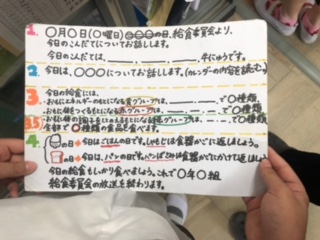 1. 〇月〇日(〇曜日)の給食委員会より、
今日のこんだてについてお話しします。
今日のこんだては、＿＿、＿＿、＿＿、＿＿、牛にゅうです。
2. 今日は、〇〇〇についてお話しします。(カレンダーの内容を読む。)
3. 今日の給食には、
・おもにエネルギーのもとになる黄グループは、＿、＿、＿で〇種類、
・おもに体をつくるもとになる赤グループは、＿、＿、＿で〇種類、
・おもに体の調子をととのえるもとになる緑グループは、＿、＿、＿で〇種類、
3.5 今日は〇種類の食品を食べます。
4. の日→今日はごはんの日です。しゃもじは食器かごに返しましょう。
の日→今日は、パンの日です。パンばさみは食器かごにかけて返しましょう。
今日の給食もしっかり食べましょう。これで〇年〇組
給食委員会の放送を終わります。